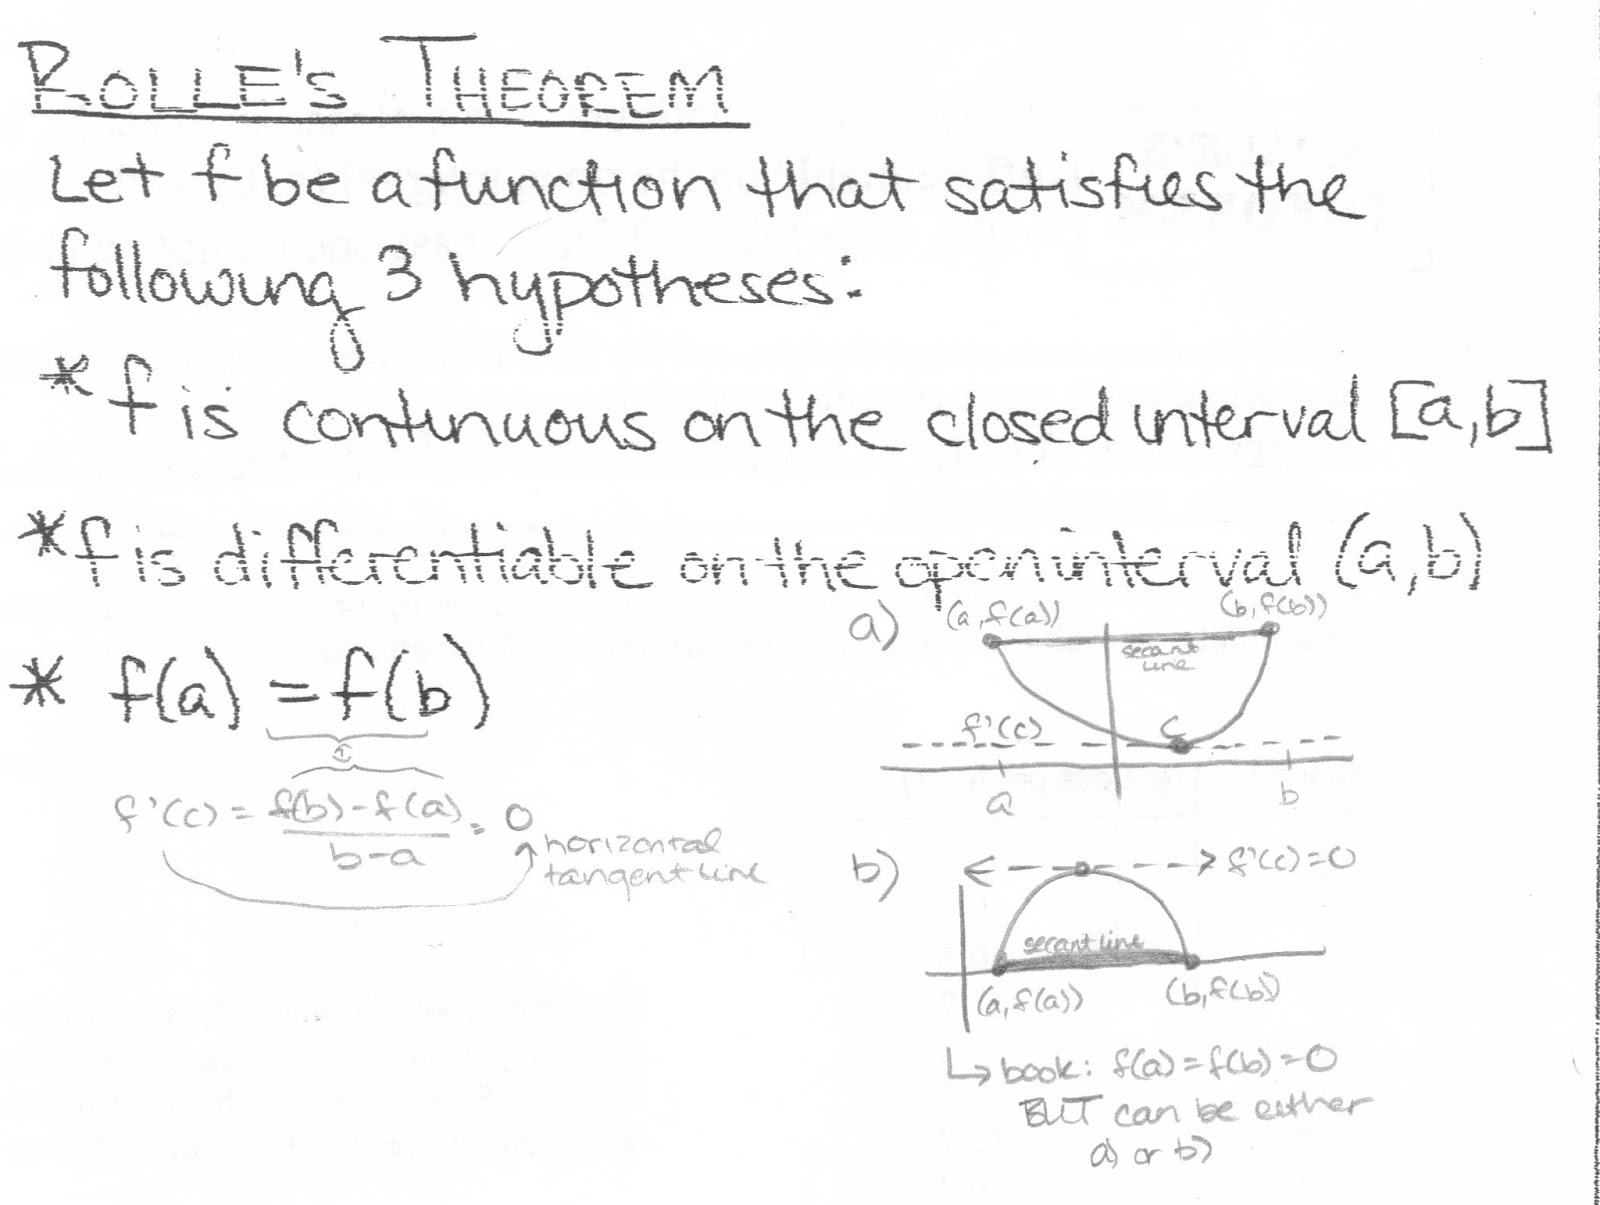 ROLLE'S THEOREM
Let f be a function that satisfies the
following 3 hypotheses:
* f is continuous on the closed interval [a,b]
* f is differentiable on the open interval (a,b)
* f(a) = f(b)
f'(c) = f(b)-f(a) = 0
b-a
horizontal
tangent line
a)
(a,f(a))
(b,f(b))
secant
line
f'(c)
c
a
b
b)
f'(c)=0
secant line
(a,f(a))
(b,f(b))
↳ book: f(a)=f(b)=0
BUT can be either
a) or b)